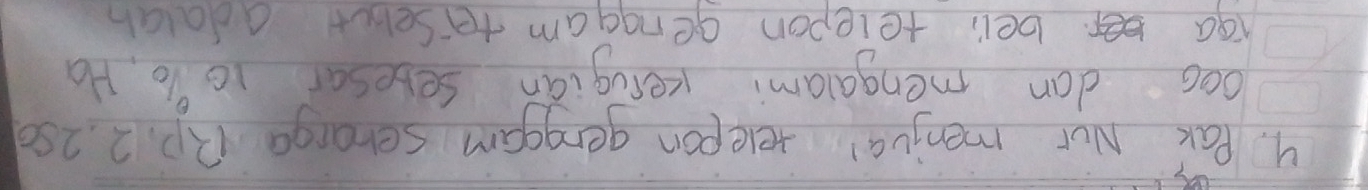 4. Pak Nur menjual telepon genggam seharga Rp. 2.250.
000 dan mengalami kerugian sebesar 10 %. Ha
rga beli telepon genggam tersebut adalah